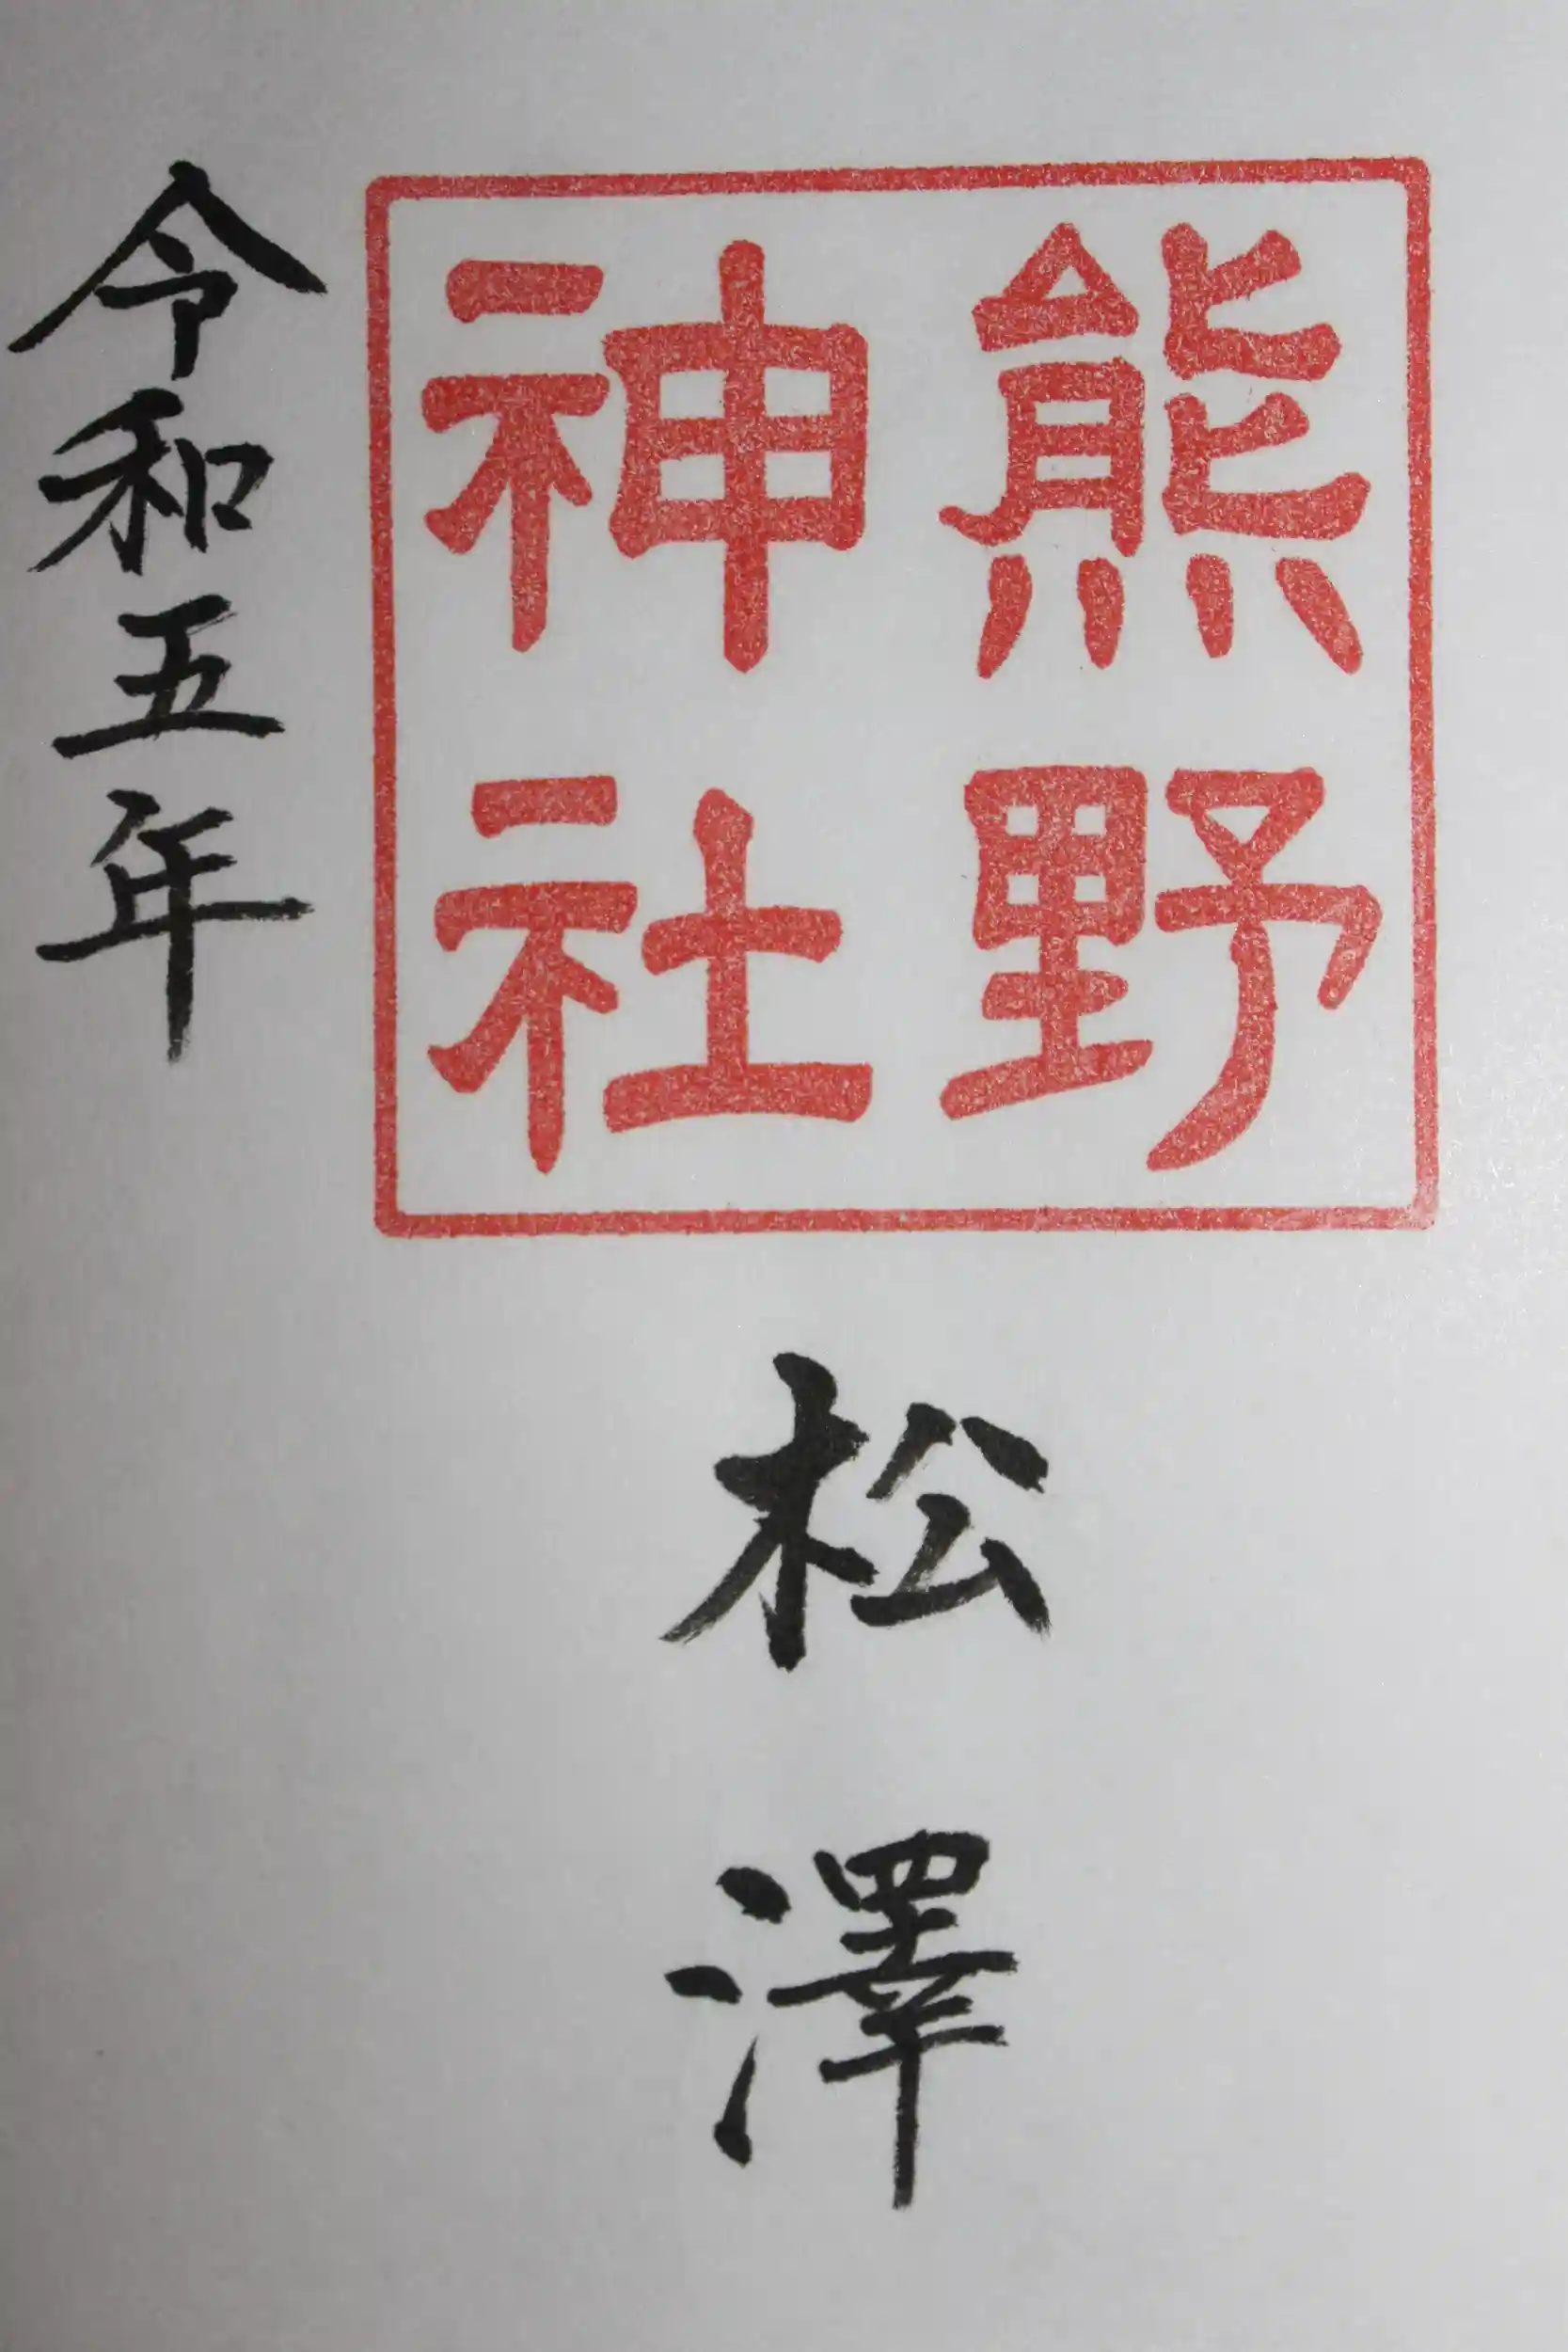 熊野
神社
松澤
令和五年